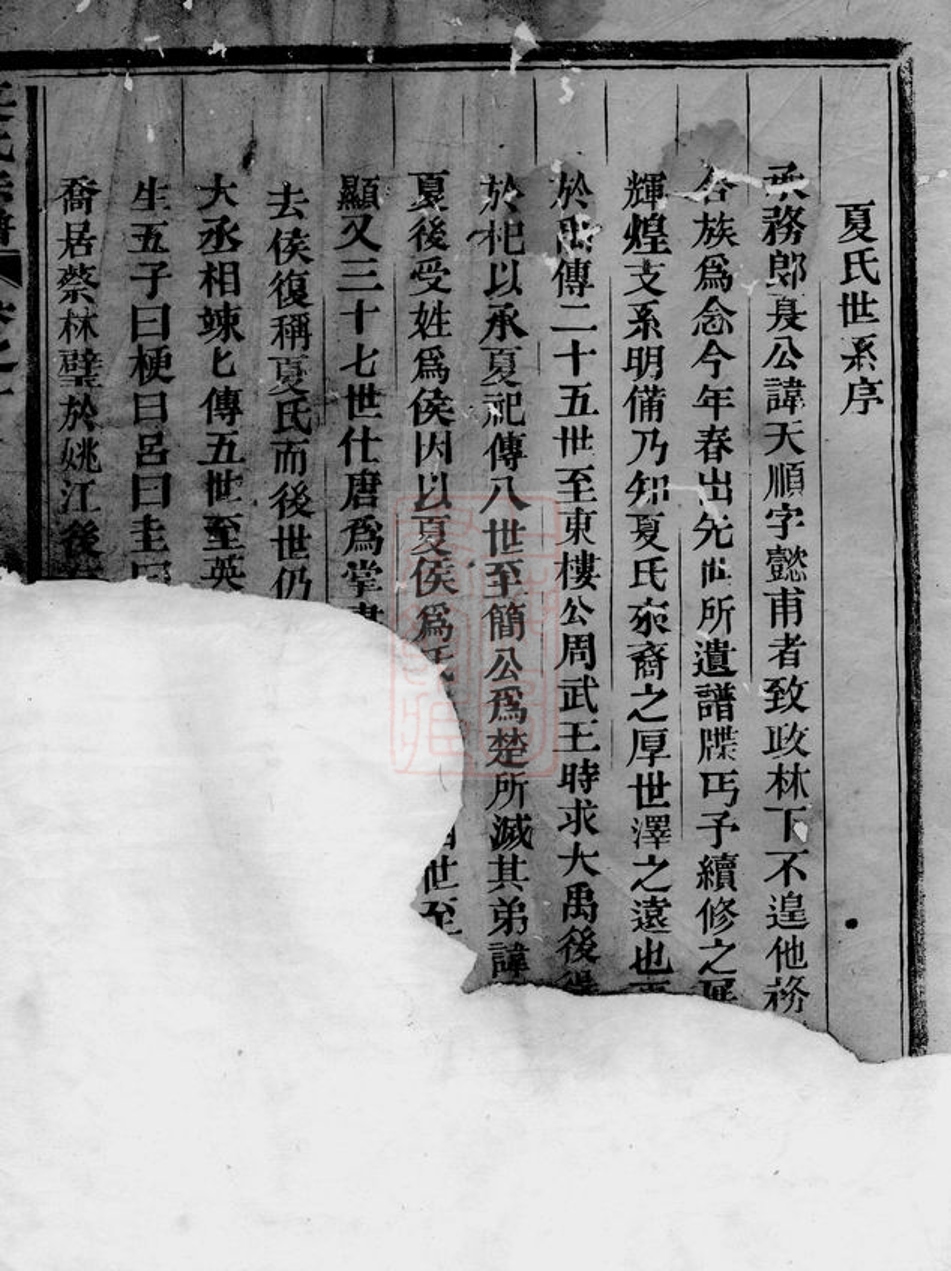 夏氏世系序
承務郎夏公諱天順字懿甫者致政林下不遑他務
各族爲念今年春出先世所遺譜牒丐予續修之
輝煌支系明備乃知夏氏來裔之厚世澤之遠也
於禹傳二十五世至東樓公周武王時求大禹後得
於杞以承夏祀傳八世至簡公爲楚所滅其弟諱
夏後受姓爲侯因以夏侯爲氏 世至
顯又三十七世仕唐爲掌書
去侯復稱夏氏而後世仍
大丞相竦七傳五世至英
生五子曰梗曰呂曰圭曰
喬居蔡林璧於姚江後
氏宗譜